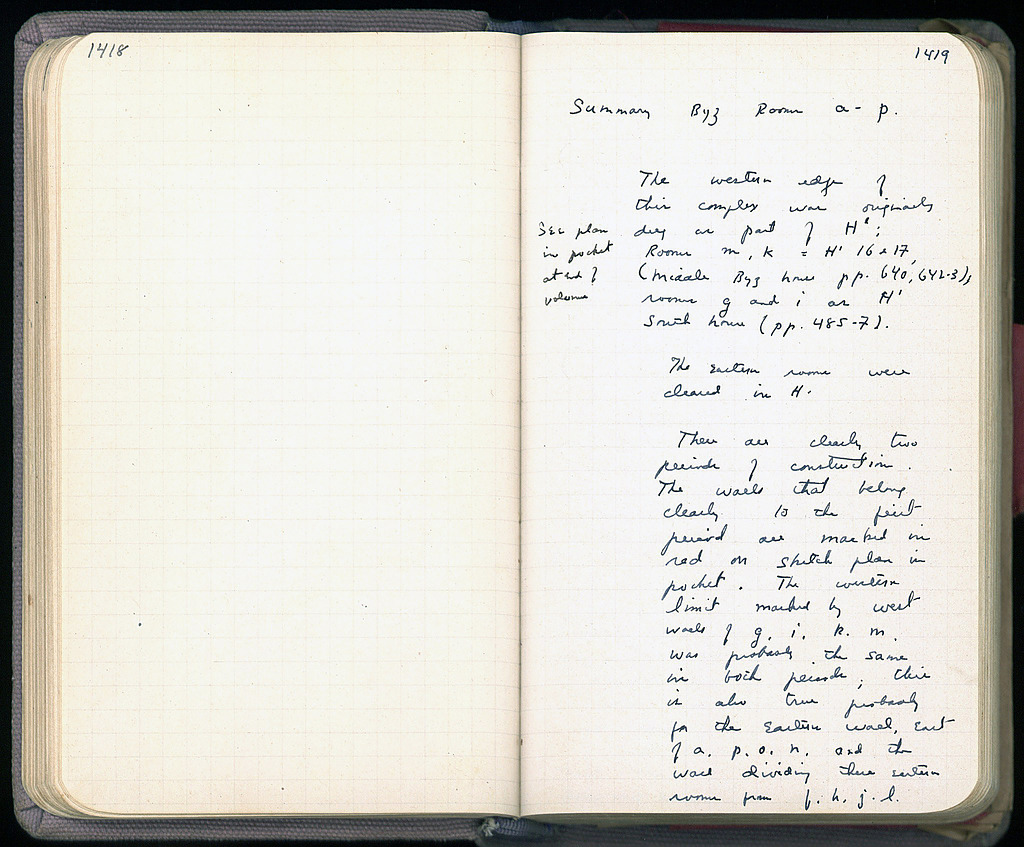 1418
1419
Summary Byz Rooms a - p.
The western edge of
this complex was originally
dug as part of H';
Rooms m, k = H' 16 & 17,
(Middle Byz house pp. 640, 642-3);
rooms g and i as H'
South house (pp. 485-7).
See plan
in pocket
at end of
volume
The eastern rooms were
cleared in H.
There are clearly two
periods of construction.
The walls that belong
clearly to the first
period are marked in
red on sketch plan in
pocket. The western
limit marked by west
walls of g. i. k. m.
was probably the same
in both periods; this
is also true probably
for the eastern wall, east
of a. p. o. n. and the
wall dividing these eastern
rooms from f. h. j. l.